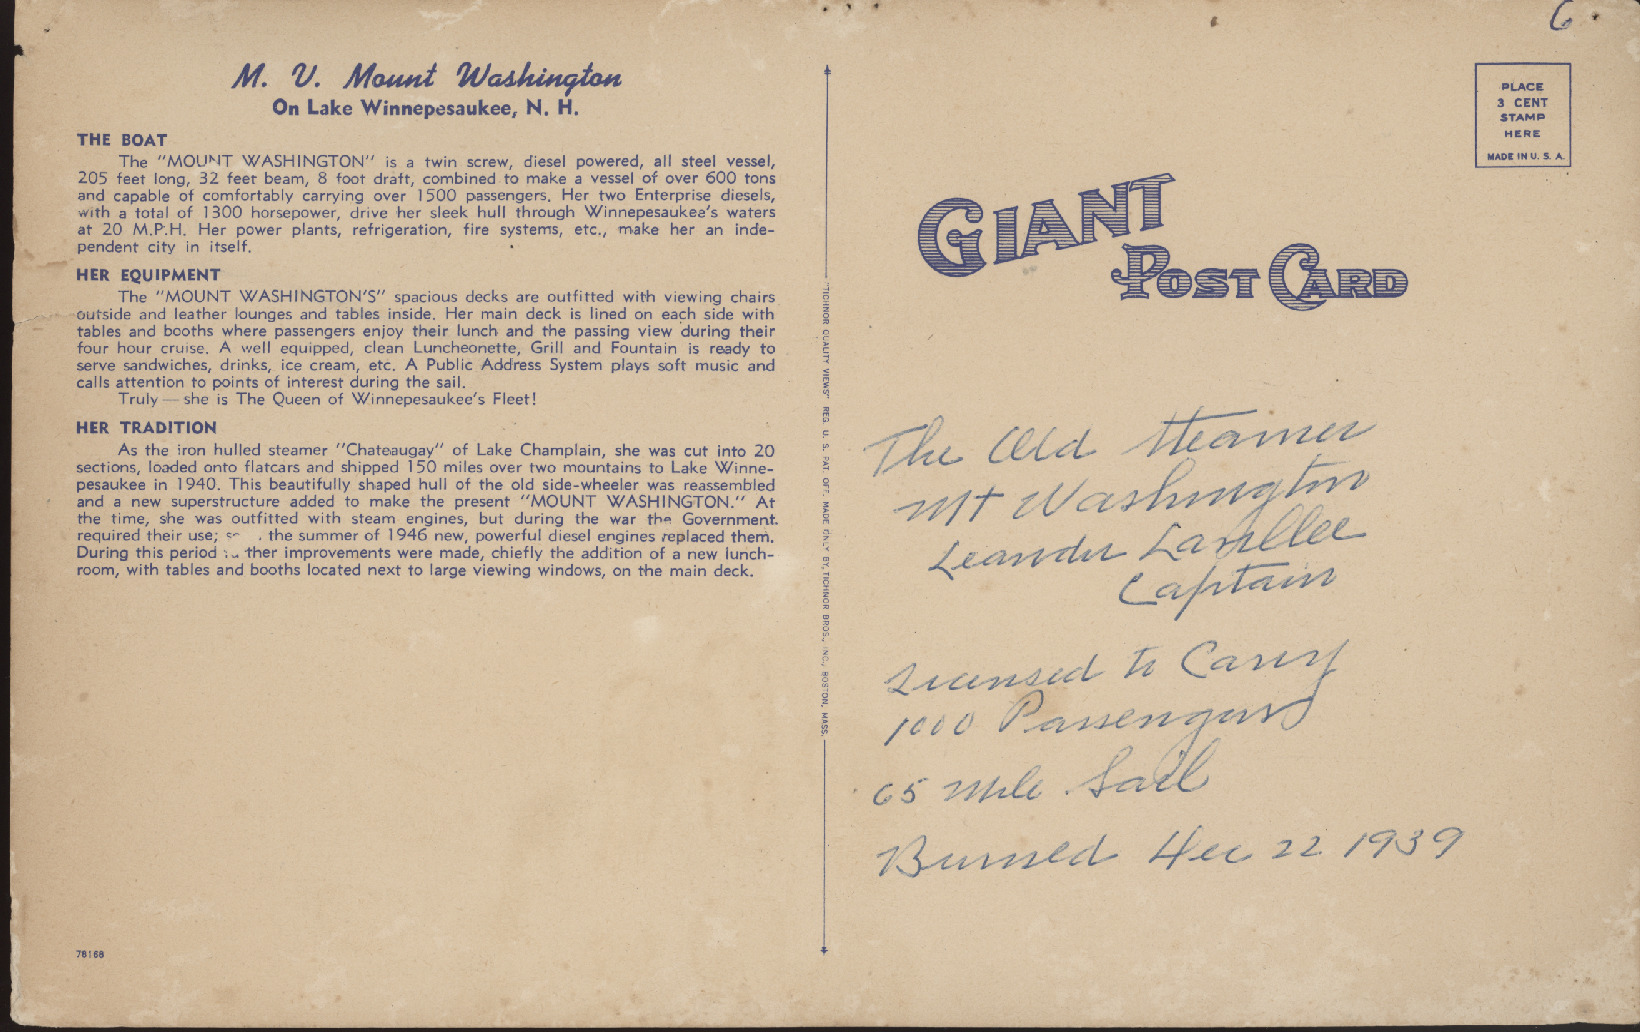 M. V. Mount Washington
On Lake Winnepesaukee, N. H.
THE BOAT
The "MOUNT WASHINGTON" is a twin screw, diesel powered, all steel vessel,
205 feet long, 32 feet beam, 8 foot draft, combined to make a vessel of over 600 tons
and capable of comfortably carrying over 1500 passengers. Her two Enterprise diesels,
with a total of 1300 horsepower, drive her sleek hull through Winnepesaukee's waters
at 20 M.P.H. Her power plants, refrigeration, fire systems, etc., make her an inde-
pendent city in itself.
HER EQUIPMENT
The "MOUNT WASHINGTON'S" spacious decks are outfitted with viewing chairs
outside and leather lounges and tables inside. Her main deck is lined on each side with
tables and booths where passengers enjoy their lunch and the passing view during their
four hour cruise. A well equipped, clean Luncheonette, Grill and Fountain is ready to
serve sandwiches, drinks, ice cream, etc. A Public Address System plays soft music and
calls attention to points of interest during the sail.
Truly — she is The Queen of Winnepesaukee's Fleet!
HER TRADITION
As the iron hulled steamer "Chateaugay" of Lake Champlain, she was cut into 20
sections, loaded onto flatcars and shipped 150 miles over two mountains to Lake Winne-
pesaukee in 1940. This beautifully shaped hull of the old side-wheeler was reassembled
and a new superstructure added to make the present "MOUNT WASHINGTON." At
the time, she was outfitted with steam engines, but during the war the Government
required their use; the summer of 1946 new, powerful diesel engines replaced them.
During this period ther improvements were made, chiefly the addition of a new lunch-
room, with tables and booths located next to large viewing windows, on the main deck.
78168
"TICHNOR QUALITY VIEWS" REG. U. S. PAT. OFF. MADE ONLY BY, TICHNOR BROS., INC., BOSTON, MASS.
6
PLACE
3 CENT
STAMP
HERE
MADE IN U. S. A.
GIANT
POST CARD
The Old Steamer
Mt Washington
Leander Lavallee
Captain
Licensed to Carry
1000 Passengers
65 Mile Sail
Burned Dec 22 1939